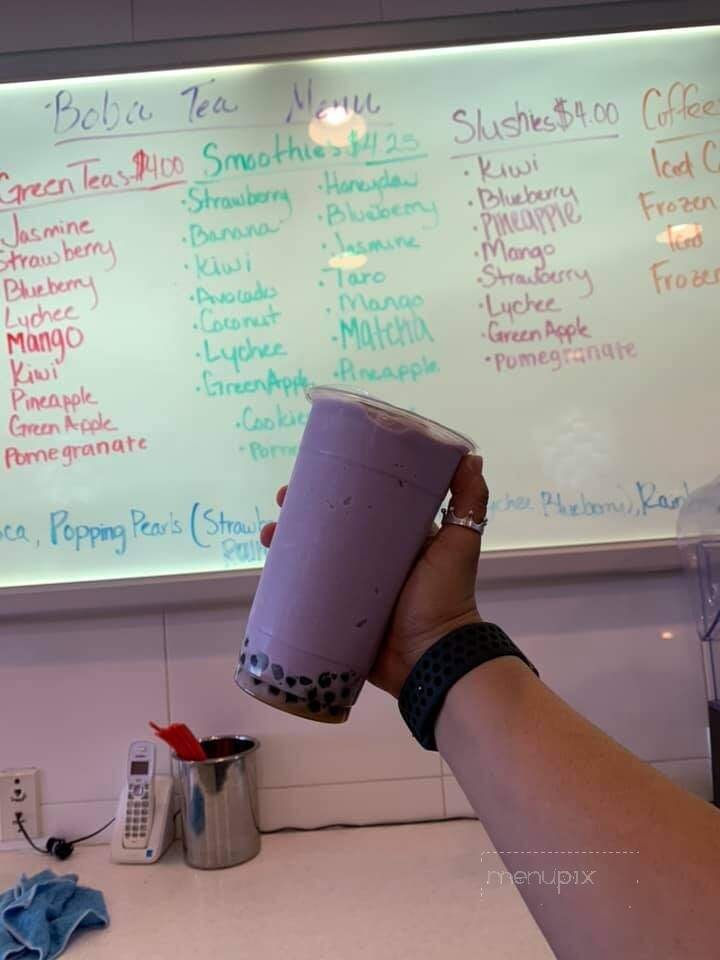 Boba Tea Menu
Green Teas $4.00
Jasmine
Strawberry
Blueberry
Lychee
Mango
Kiwi
Pineapple
Green Apple
Pomegranate
Smoothies $4.25
• Strawberry
• Banana
• Kiwi
• Avocado
• Coconut
• Lychee
• Green Apple
• Cookie
• Honeydew
• Blueberry
• Jasmine
• Taro
• Mango
• Matcha
• Pineapple
Slushies $4.00
• Kiwi
• Blueberry
• Pineapple
• Mango
• Strawberry
• Lychee
• Green Apple
• Pomegranate
Coffee
Iced C
Frozen
Iced
Frozen
oca, Popping Pearls (Strawb
ychee, Blueberry), Rainb
menupix